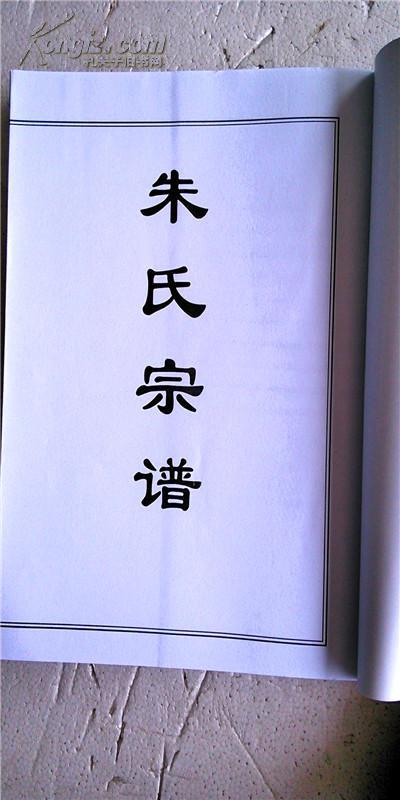 Kongfz.com
孔夫子旧书网
朱氏宗谱